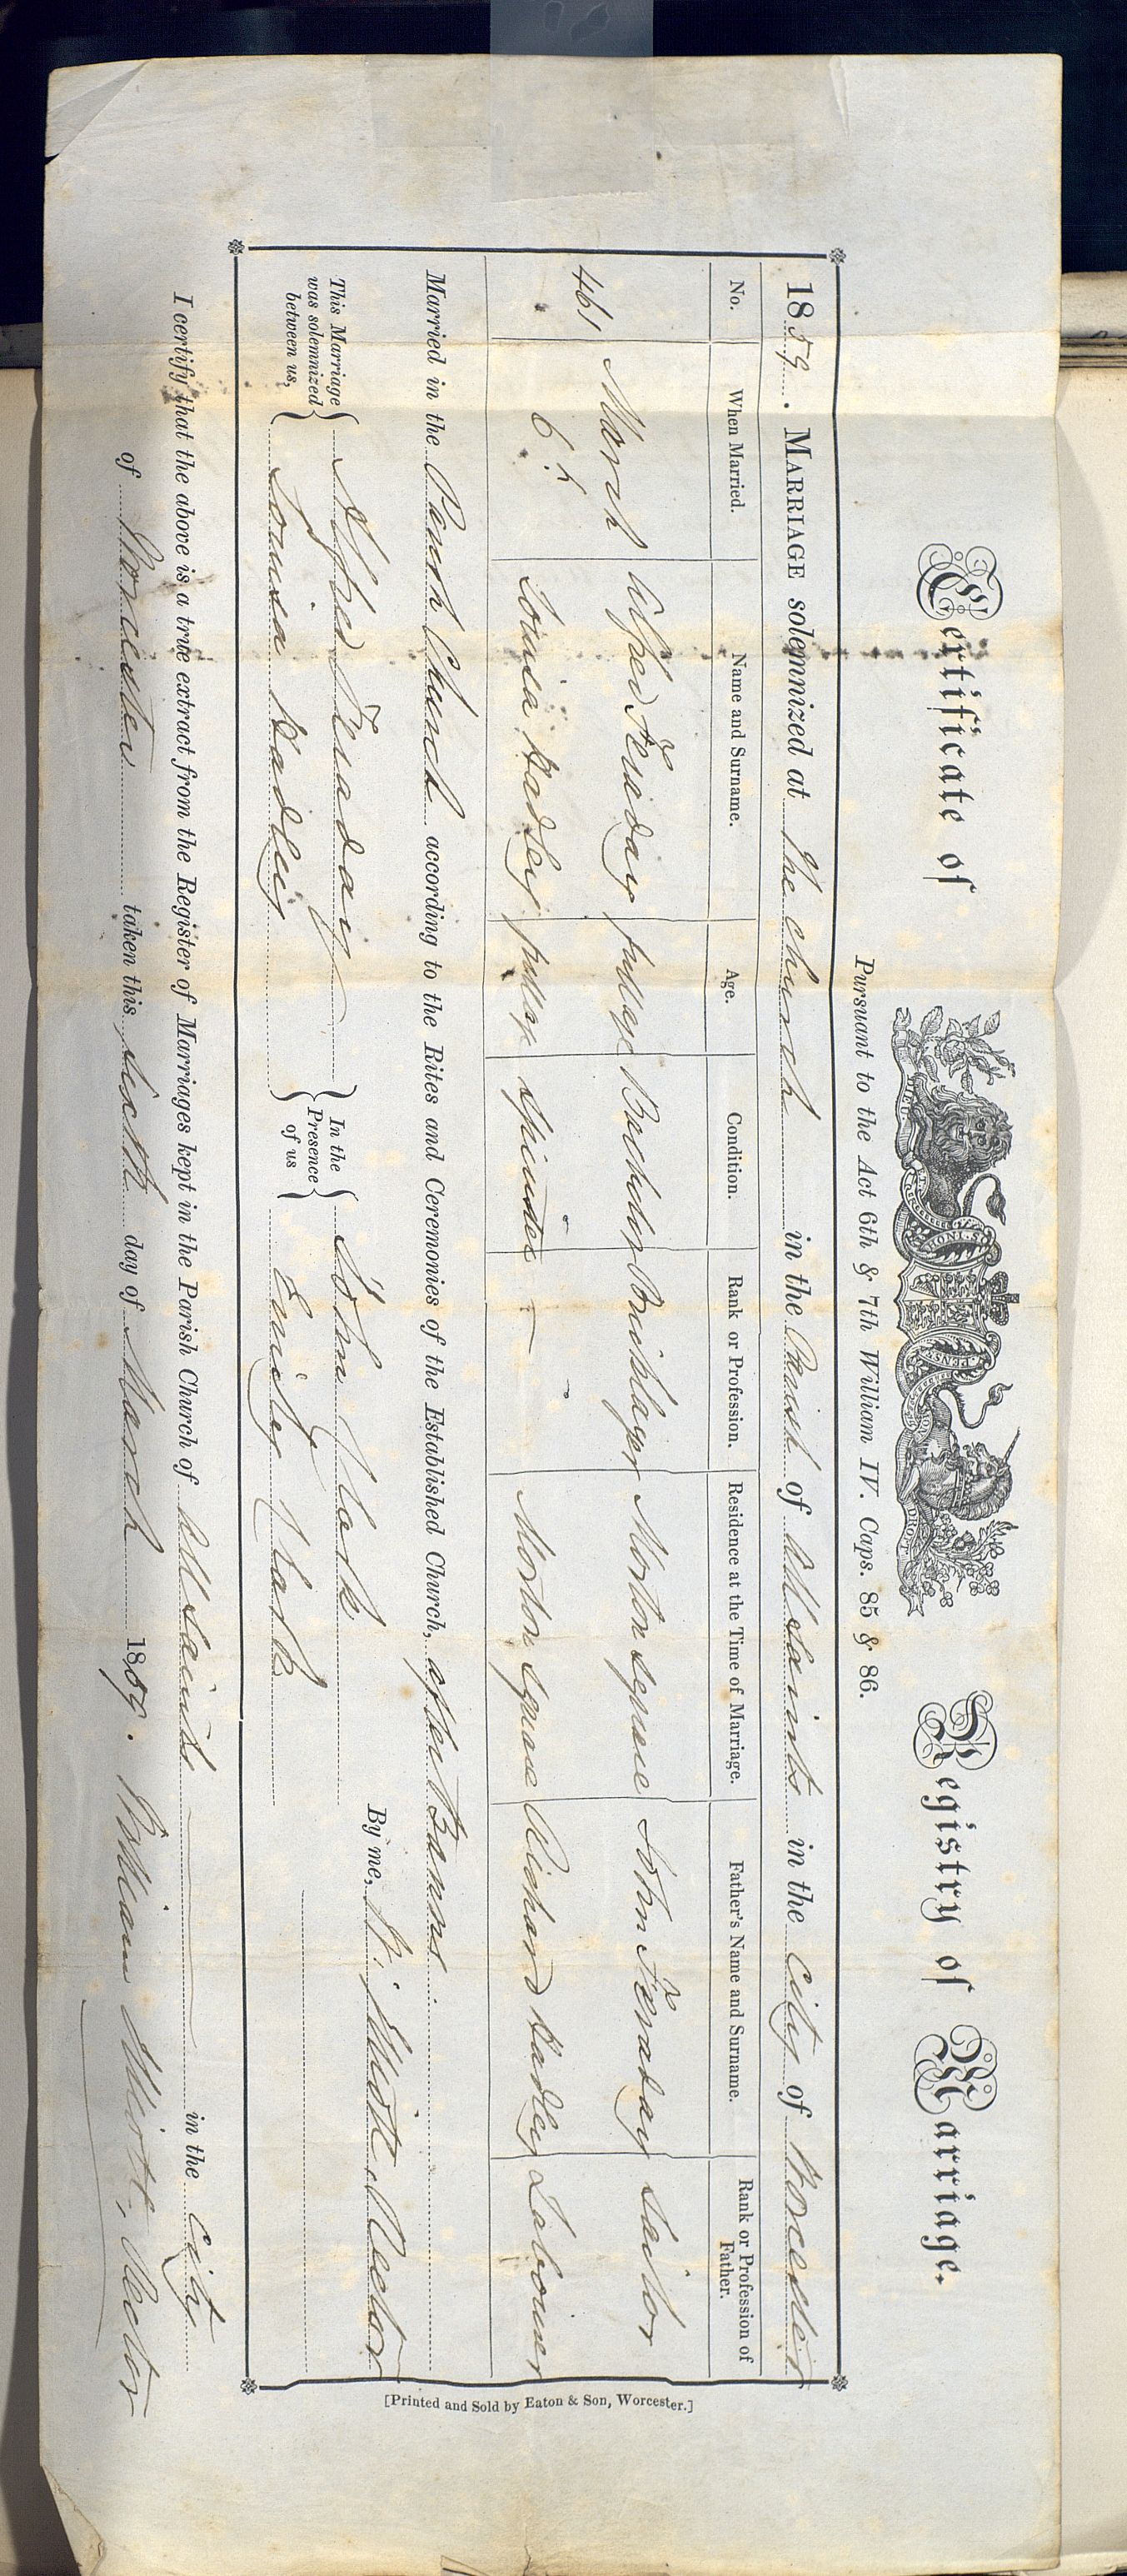 Certificate of Registry of Marriage.
Pursuant to the Act 6th & 7th William IV. Caps. 85 & 86.
1859. MARRIAGE solemnized at The church in the Parish of All Saints in the City of Worcester
No. When Married. Name and Surname. Age. Condition. Rank or Profession. Residence at the Time of Marriage. Father's Name and Surname. Rank or Profession of Father.
461 March Alfred full age Bachelor Bricklayer Morton Square John Sailor
6th Louisa Hadley full age Spinster — Morton Square Richard Hadley Labourer
Married in the Parish Church according to the Rites and Ceremonies of the Established Church, after Banns
By me, W. Elliott Rector
This Marriage was solemnized between us, Alfred
Louisa Hadley
In the Presence of us John Clark
Emily Clark
I certify that the above is a true extract from the Register of Marriages kept in the Parish Church of All Saints in the City
of Worcester taken this sixth day of March 1859. William Elliott, Rector
[Printed and Sold by Eaton & Son, Worcester.]